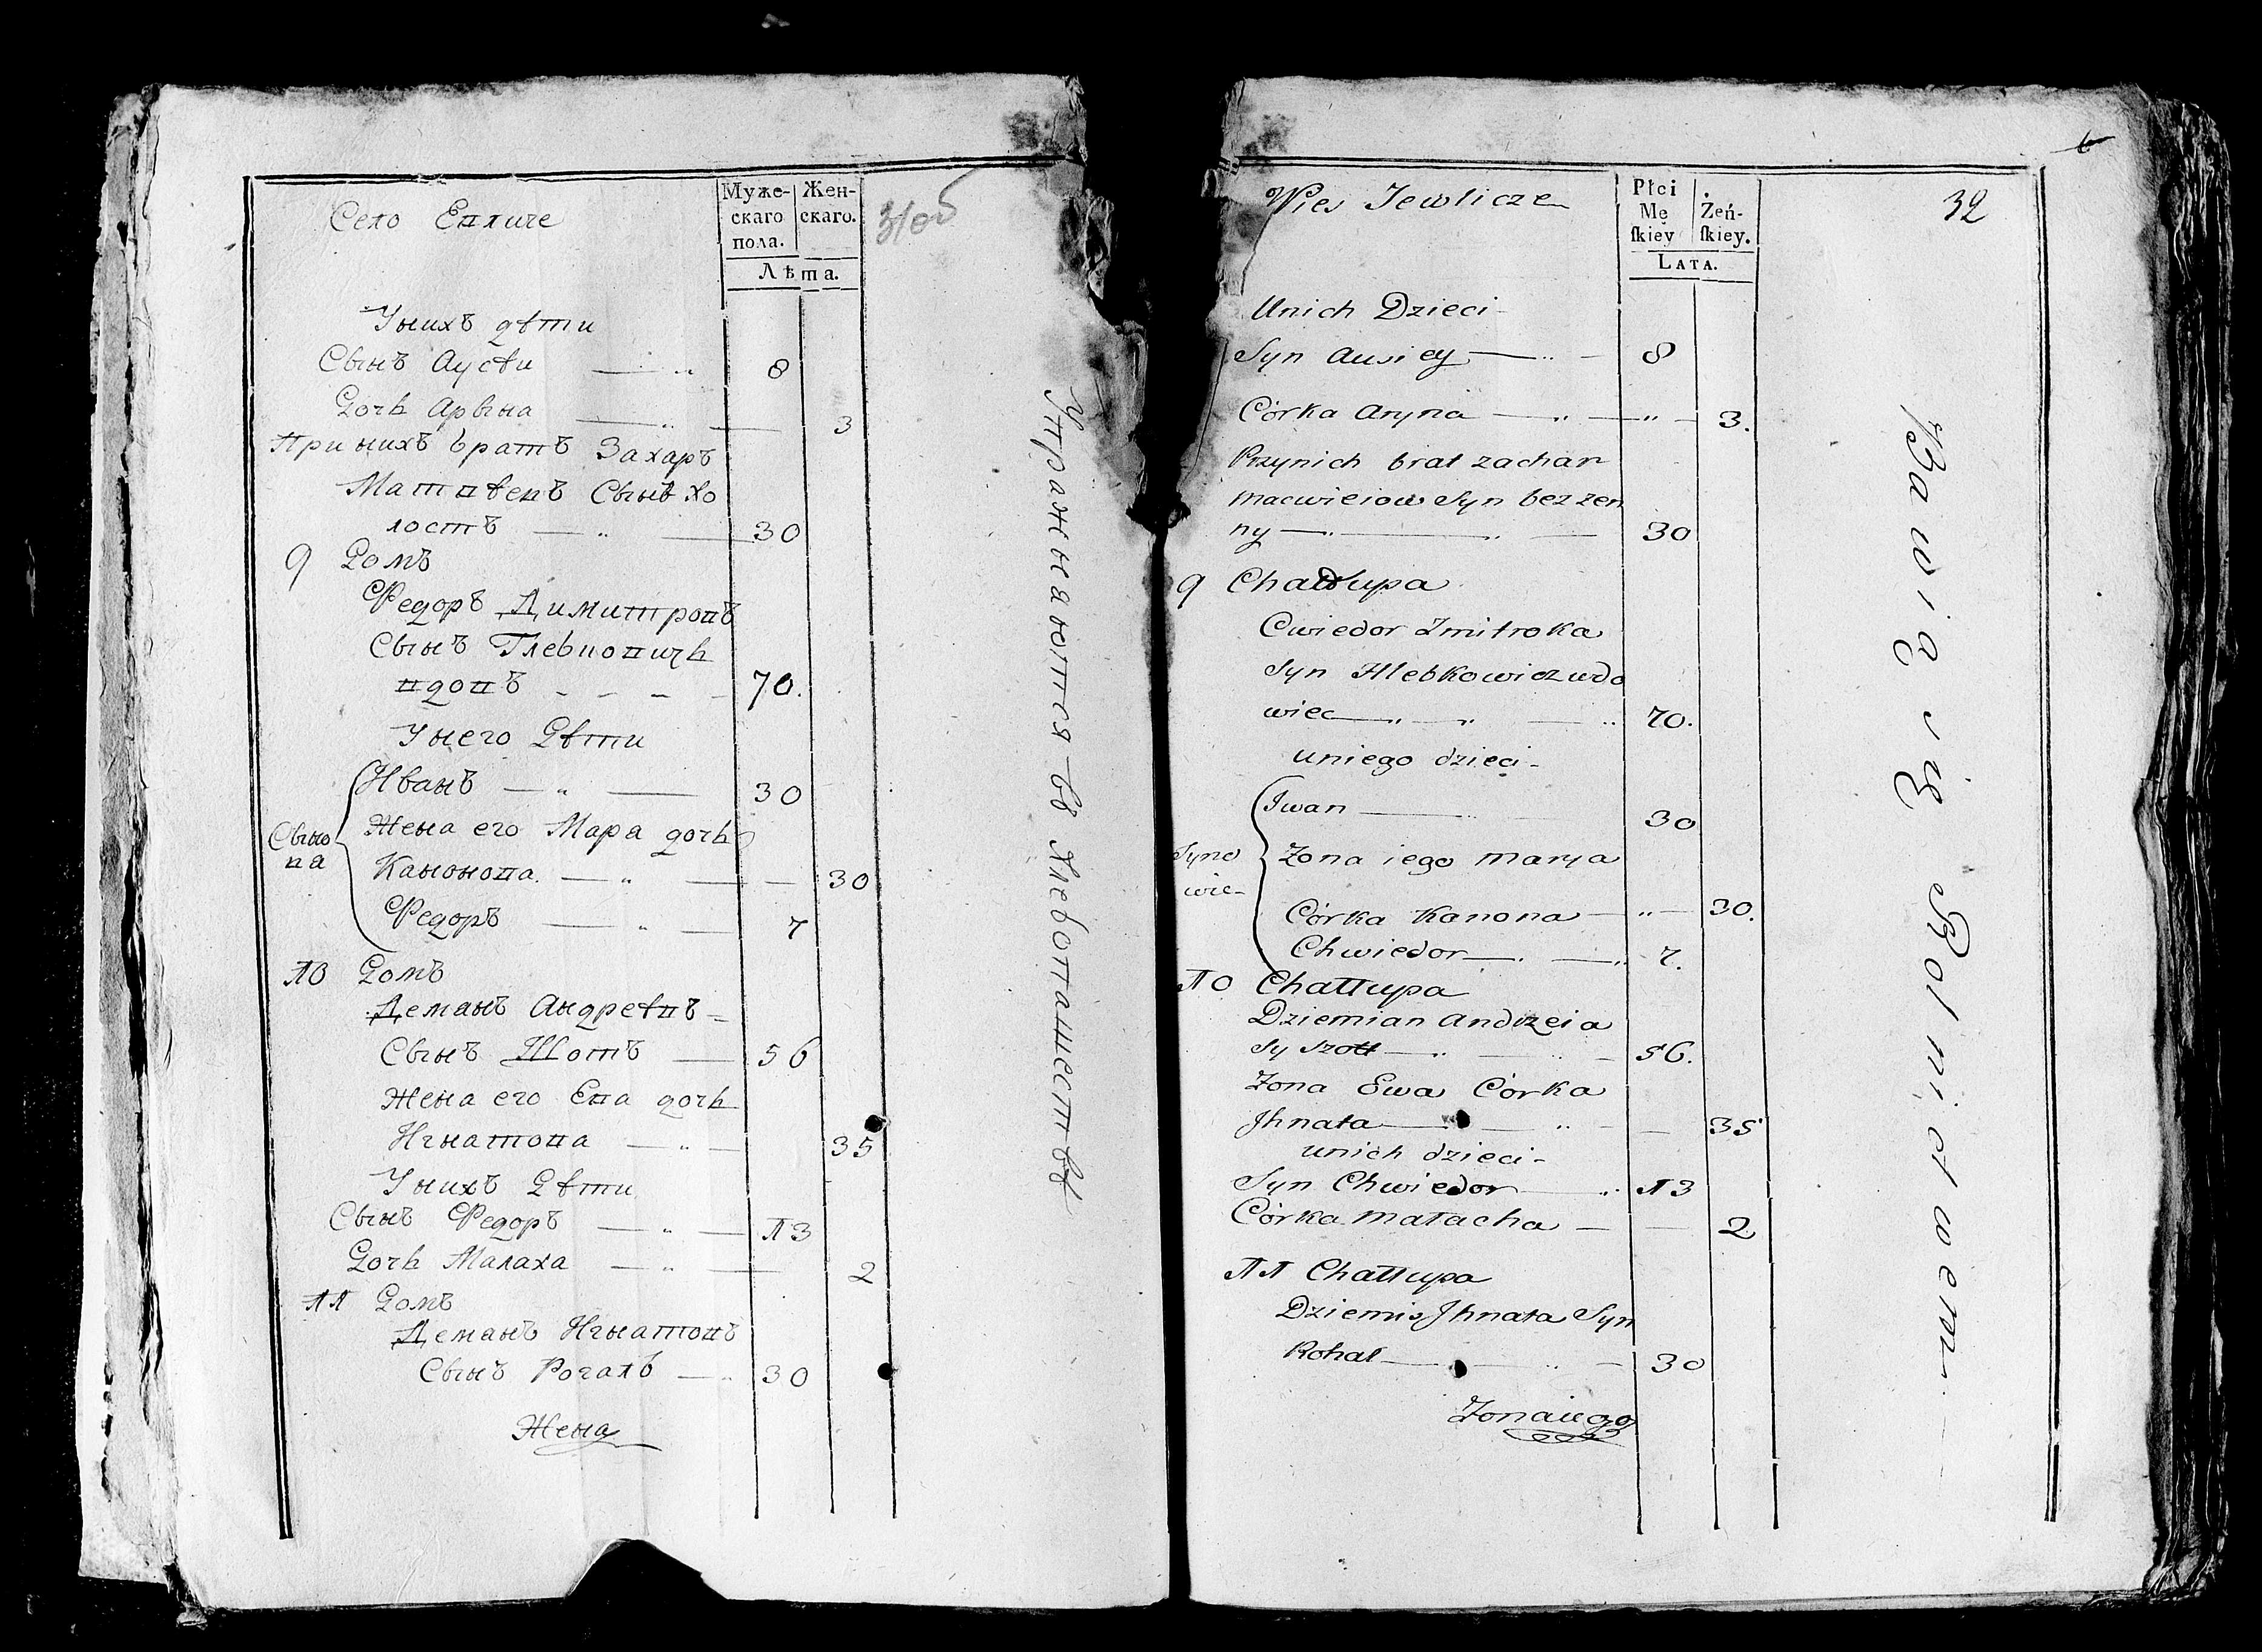 Село Евличе
Муже-
скаго
пола.
Жен-
скаго.
Лѣта.
31об
Унихъ дѣти
Сынъ Аусѣи 8
Дочь Арына 3
При нихъ братъ Захаръ
Матвѣевъ Сынъ хо
лостъ 30
9 Домъ
Федоръ Димитровъ
Сынъ Глебковичь
вдовъ 70.
Унего Дѣти
Иванъ 30
Жена его Мара дочь
Сыно
ва
Канонова. 30
Федоръ 7
10 Домъ
Деманъ Андреѣвъ
Сынъ Шотъ 56
Жена его Ева дочь
Игнатова 35
Унихъ Дѣти
Сынъ Федоръ 13
Дочь Малаха 2
11 Домъ
Деманъ Игнатовъ
Сынъ Рогаль 30
Жена
Упражняются въ хлебопашествѣ
Wies Jewlicze
Płci
Mę
ſkiey
Żeń-
ſkiey.
LATA.
32
Unich Dzieci
Syn Ausiey 8
Córka Aryna 3.
Przynich brat zachar
macwieiow Syn bezzen
ny 30
9 Chałłupa
Cwiedor Zmitroka
Syn Hlebkowicz wdo
wiec 70.
uniego dzieci
Iwan 30
Syno
wie
Zona iego marya
Córka Kanona 30.
Chwiedor 7.
10 Chałłupa
Dziemian Andrzeia
Sy Szott 56.
Zona Ewa Córka
Jhnata 35
unich dzieci
Syn Chwiedor 13
Córka małacha 2
11 Chałłupa
Dziemis Jhnata Syn
Rohal 30
Zona iego
Bawią się Rolnictwem